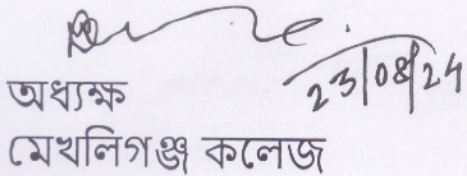 23/08/24
অধ্যক্ষ
মেখলিগঞ্জ কলেজ